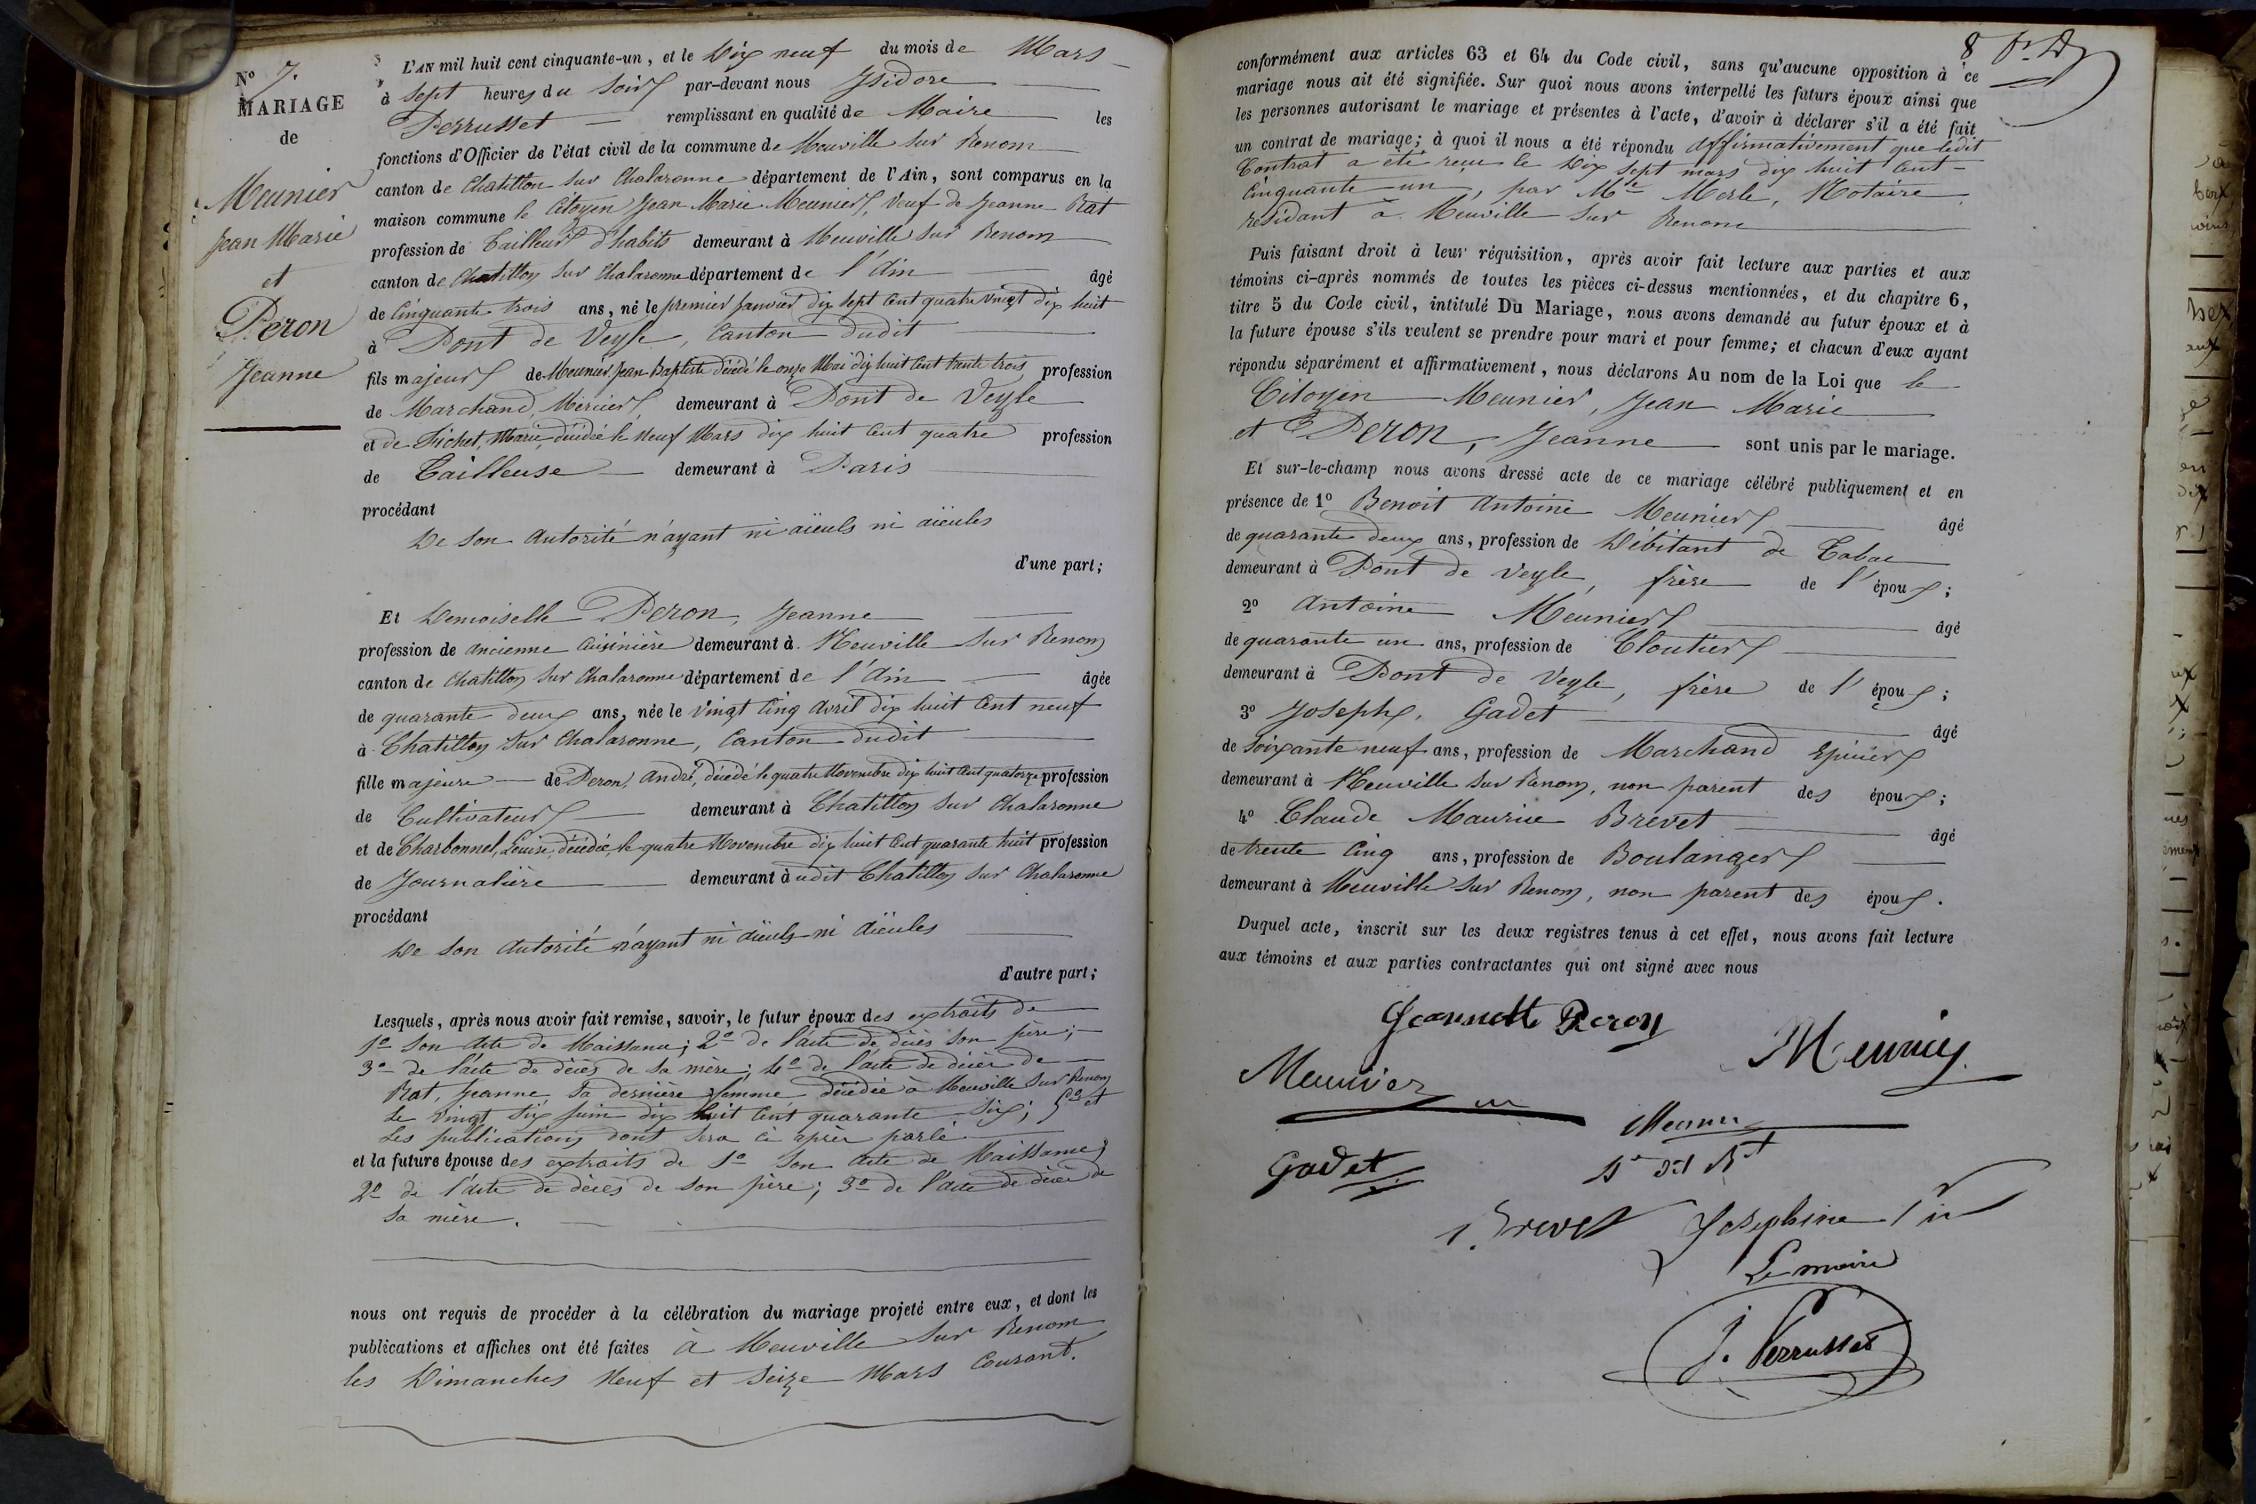 N° 7.
MARIAGE
de
Meunier
Jean Marie
et
Peron
Jeanne
L'AN mil huit cent cinquante-un, et le Dix neuf du mois de Mars
à Sept heures du Soir par-devant nous Ysidore
Perrusset remplissant en qualité de Maire les
fonctions d'Officier de l'état civil de la commune de Neuville sur Renom
canton de Chatillon sur Chalaronne département de l'Ain, sont comparus en la
maison commune le Citoyen Jean Marie Meunier, Veuf de Jeanne Rat
profession de Tailleur d'habits demeurant à Neuville sur Renom
canton de Chatillon sur Chalaronne département de l'Ain âgé
de Cinquante trois ans, né le premier Janvier dix sept cent quatre vingt dix huit
à Pont de Veyle, Canton dudit
fils majeur de Meunier Jean Baptiste décédé le onze Mai dix huit cent trente trois profession
de Marchand Mercier, demeurant à Pont de Veyle
et de Fichet, Marie, décédée le neuf Mars dix huit cent quatre profession
de Tailleuse demeurant à Paris
procédant
De son autorité n'ayant ni aïeuls ni aïeules
d'une part;
Et Demoiselle Peron, Jeanne
profession de ancienne cuisinière demeurant à Neuville sur Renom
canton de Chatillon sur Chalaronne département de l'Ain âgée
de quarante deux ans, née le vingt cinq avril dix huit cent neuf
à Chatillon sur Chalaronne, Canton dudit
fille majeure de Peron, André, décédé le quatre Novembre dix huit cent quatorze profession
de Cultivateur demeurant à Chatillon sur Chalaronne
et de Charbonnel, Louise, décédée, le quatre Novembre dix huit cent quarante huit profession
de Journalière demeurant à udit Chatillon sur Chalaronne
procédant
De son autorité n'ayant ni aïeuls ni aïeules
d'autre part;
Lesquels, après nous avoir fait remise, savoir, le futur époux des extraits de
1° Son acte de Naissance; 2° de l'acte de décès son père;
3° de l'acte de décès de sa mère; 4° de l'acte de décès de
Rat, Jeanne, sa dernière femme décédée à Neuville sur Renom
le vingt six juin dix huit cent quarante six; 5° et
les publications dont sera ci après parlé
et la future épouse des extraits de 1° Son acte de Naissance;
2° de l'acte de décès de son père; 3° de l'acte de décès de
sa mère.
nous ont requis de procéder à la célébration du mariage projeté entre eux, et dont les
publications et affiches ont été faites à Neuville sur Renom
les Dimanches Neuf et Seize Mars Courant.
8
conformément aux articles 63 et 64 du Code civil, sans qu'aucune opposition à ce
mariage nous ait été signifiée. Sur quoi nous avons interpellé les futurs époux ainsi que
les personnes autorisant le mariage et présentes à l'acte, d'avoir à déclarer s'il a été fait
un contrat de mariage; à quoi il nous a été répondu affirmativement que ledit
Contrat a été reçu le Dix sept mars dix huit cent
Cinquante un, par Me Merle, Notaire
résidant à Neuville sur Renom
Puis faisant droit à leur réquisition, après avoir fait lecture aux parties et aux
témoins ci-après nommés de toutes les pièces ci-dessus mentionnées, et du chapitre 6,
titre 5 du Code civil, intitulé Du Mariage, nous avons demandé au futur époux et à
la future épouse s'ils veulent se prendre pour mari et pour femme; et chacun d'eux ayant
répondu séparément et affirmativement, nous déclarons Au nom de la Loi que le
Citoyen Meunier, Jean Marie
et Peron, Jeanne sont unis par le mariage.
Et sur-le-champ nous avons dressé acte de ce mariage célébré publiquement et en
présence de 1° Benoit Antoine Meunier âgé
de quarante deux ans, profession de Débitant de Tabac
demeurant à Pont de Veyle, frère de l'époux;
2° Antoine Meunier âgé
de quarante un ans, profession de Cloutier
demeurant à Pont de Veyle, frère de l'époux;
3° Joseph, Gadet âgé
de Soixante neuf ans, profession de Marchand Epicier
demeurant à Neuville sur Renom, non parent des époux;
4° Claude Maurice Brevet âgé
de trente cinq ans, profession de Boulanger
demeurant à Neuville sur Renom, non parent des époux.
Duquel acte, inscrit sur les deux registres tenus à cet effet, nous avons fait lecture
aux témoins et aux parties contractantes qui ont signé avec nous
Jeannette Peron
Meunier
Meunier
Meunier
Gadet
Brevet Josephine
Le maire
J. Perrusset